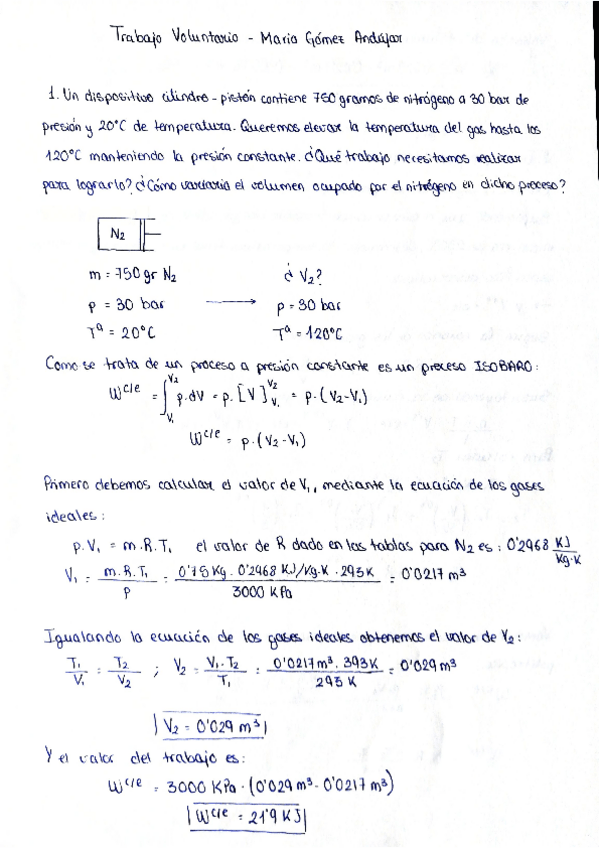 Trabajo Voluntario - Maria Gómez Andújar
1. Un dispositivo cilindro-pistón contiene 750 gramos de nitrógeno a 30 bar de
presión y 20°C de temperatura. Queremos elevar la temperatura del gas hasta los
120°C manteniendo la presión constante. ¿Qué trabajo necesitamos realizar
para lograrlo? ¿Cómo variaria el volumen ocupado por el nitrógeno en dicho proceso?
N₂
m = 750 gr N₂ ¿ V₂?
p = 30 bar → p = 30 bar
Tª = 20°C Tª = 120°C
Como se trata de un proceso a presión constante es un proceso ISOBARO:
W^c/e = ∫_V₁^V₂ p.dV = p.[V]_V₁^V₂ = p.(V₂-V₁)
W^c/e = p.(V₂-V₁)
Primero debemos calcular el valor de V₁, mediante la ecuación de los gases
ideales:
p.V₁ = m.R.T₁ el valor de R dado en las tablas para N₂ es: 0'2968 KJ/Kg.K
V₁ = m.R.T₁/p = 0'75 Kg. 0'2968 KJ/Kg.K . 293K/3000 KPa = 0'0217 m³
Igualando la ecuación de los gases ideales obtenemos el valor de V₂:
T₁/V₁ = T₂/V₂ ; V₂ = V₁.T₂/T₁ = 0'0217m³. 393K/293K = 0'029 m³
V₂ = 0'029 m³
Y el valor del trabajo es:
W^c/e = 3000 KPa . (0'029 m³ - 0'0217 m³)
W^c/e = 21'9 KJ